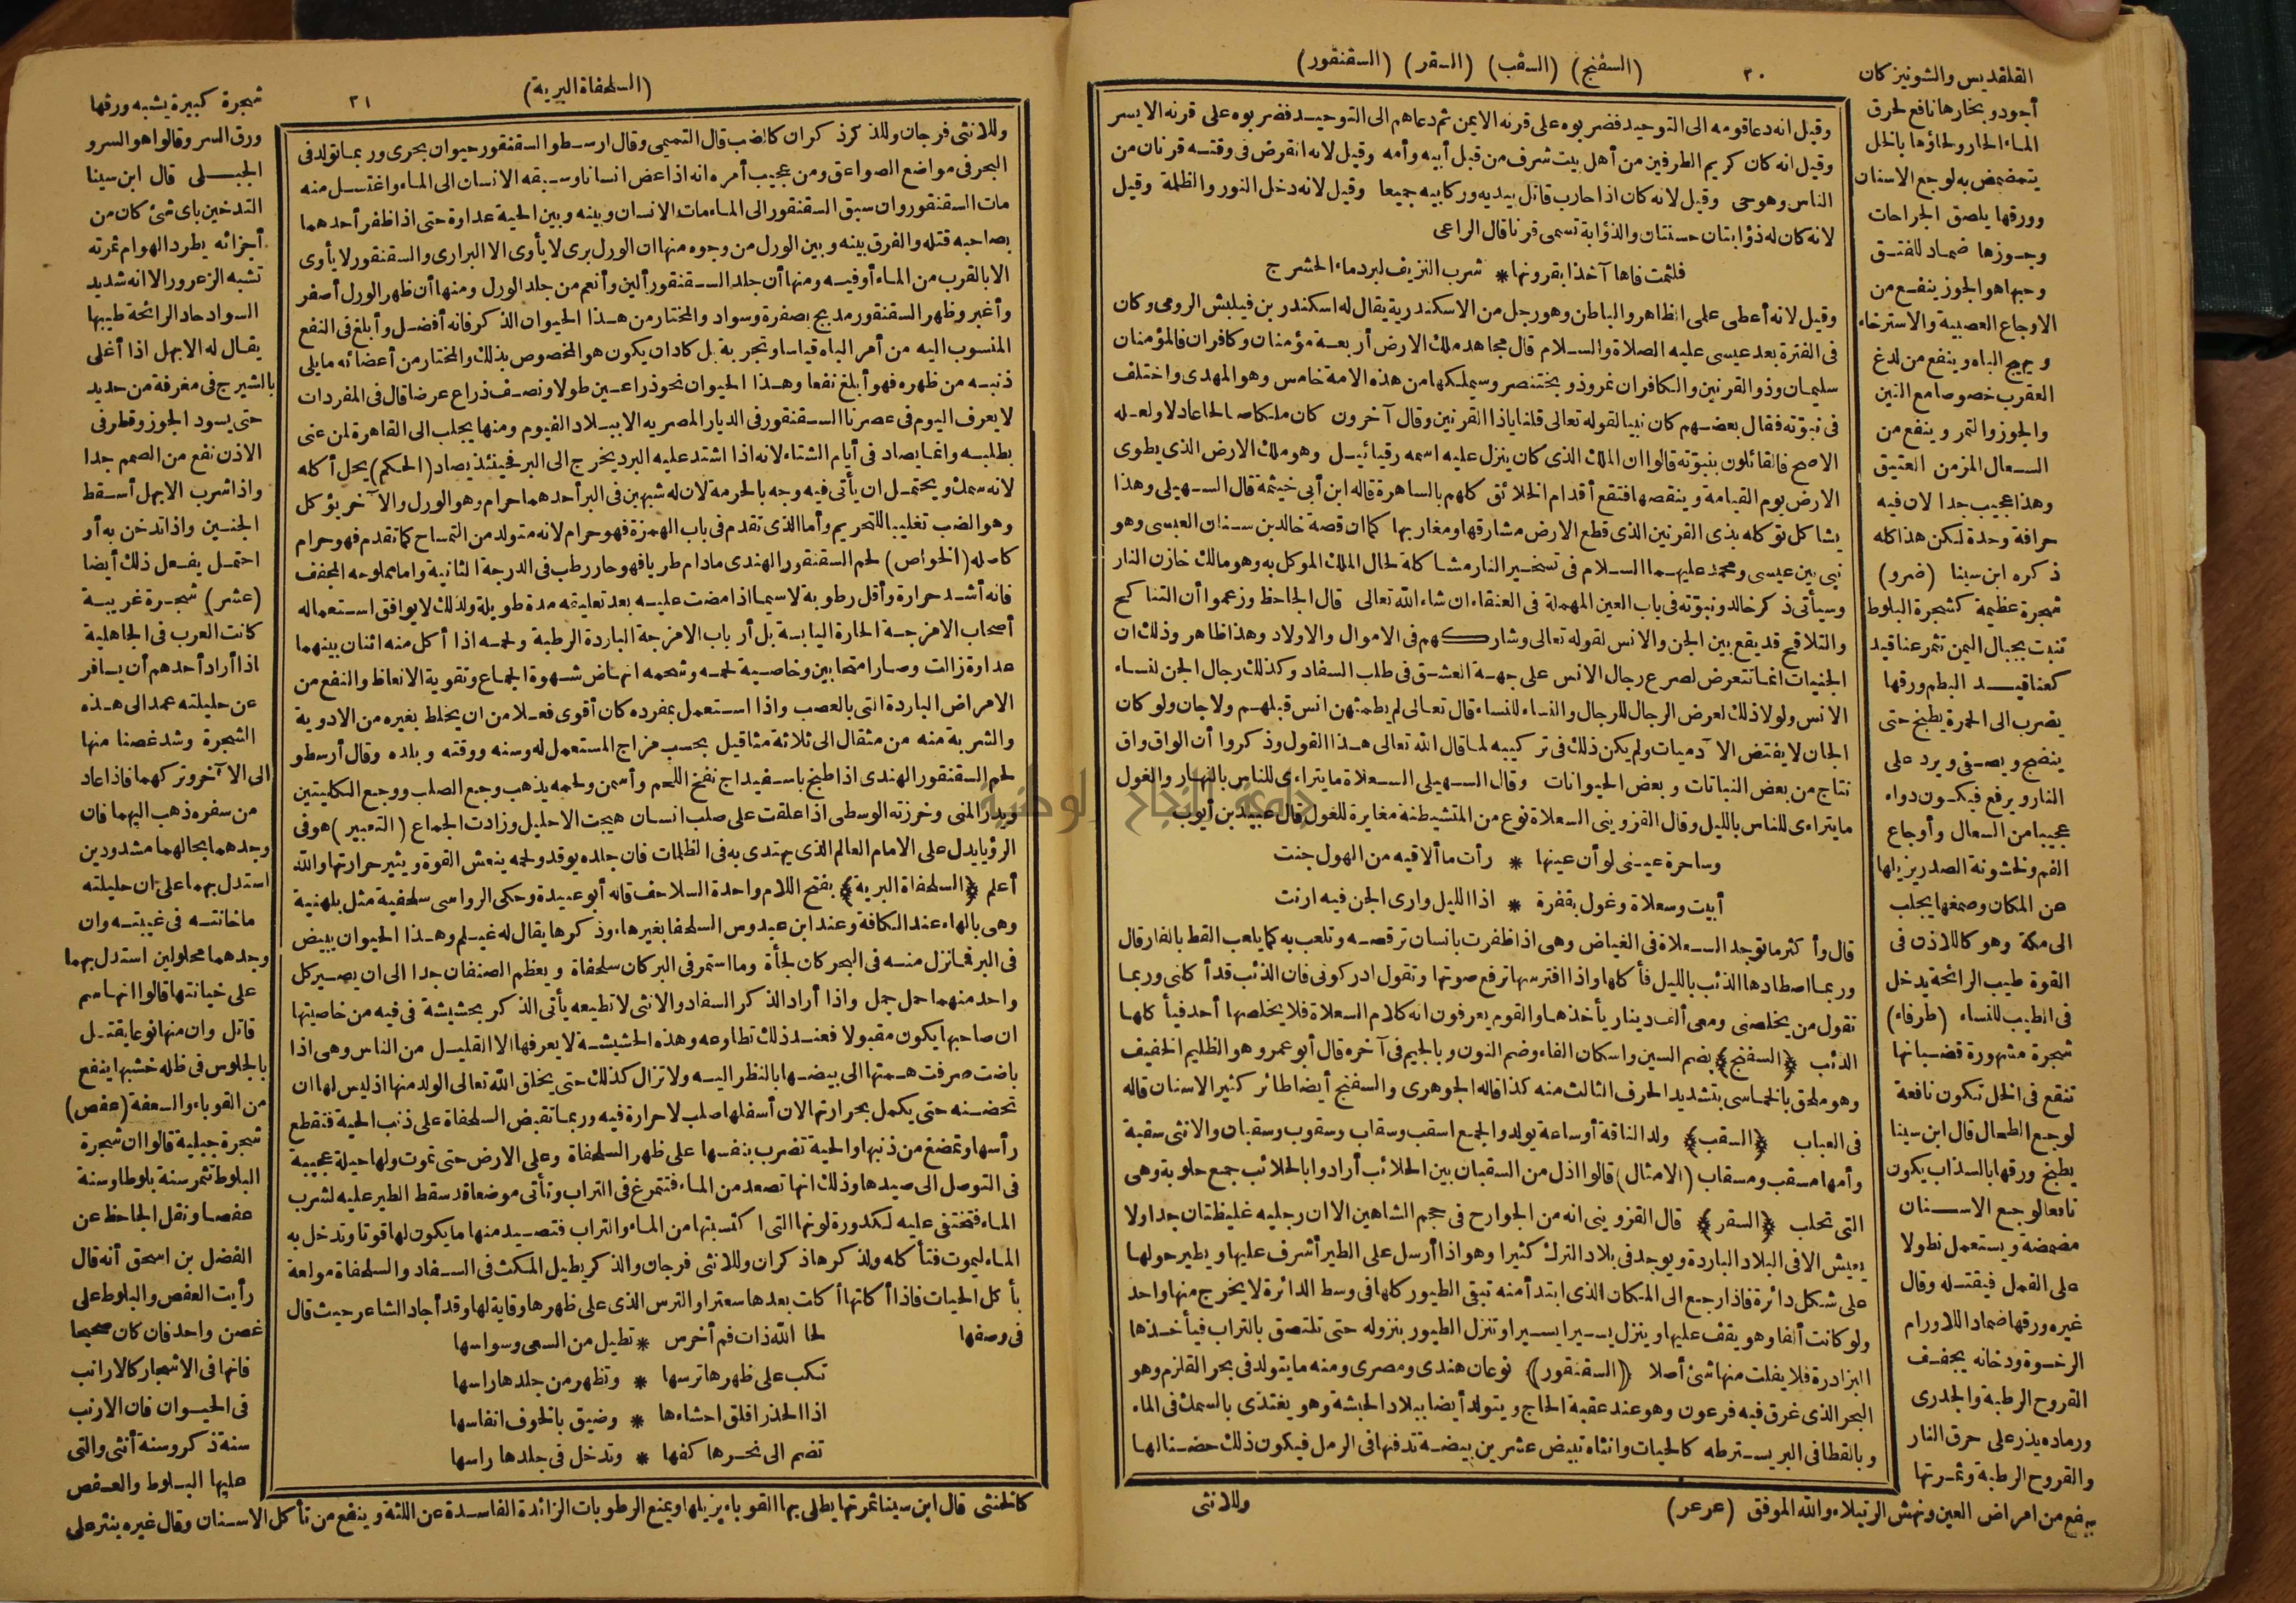 (السفنج) (السقب) (السقر) (السقنقور)
٣٠
وقيل انه دعا قومه الى التوحيد فضربوه على قرنه الايمن ثم دعاهم الى التوحيد فضربوه على قرنه الايسر
وقيل انه كان كريم الطرفين من أهل بيت شرف من قبل أبيه وأمه وقيل لانه انقرض فى وقته قرنان من
الناس وهو حى وقيل لانه كان اذا حارب قاتل بيديه وركابيه جميعا وقيل لانه دخل النور والظلمة وقيل
لانه كان له ذؤابتان حسنتان والذؤابة تسمى قرنا قال الراعى
فلثمت فاها آخذا بقرونها * شرب النزيف لبرد ماء الحشرج
وقيل لانه أعطى علمى الظاهر والباطن وهو رجل من الاسكندرية يقال له اسكندر بن فيلبش الرومى وكان
فى الفترة بعد عيسى عليه الصلاة والسلام قال مجاهد ملك الارض أربعة مؤمنان وكافران فالمؤمنان
سليمان وذو القرنين والكافران نمروذ وبختنصر وسيملكها من هذه الامة خامس وهو المهدى واختلف
فى نبوّته فقال بعضهم كان نبيا لقوله تعالى قلنا ياذا القرنين وقال آخرون كان ملكا صالحا عادلا ولعله
الاصح فالقائلون بنبوّته قالوا ان الملك الذى كان ينزل عليه اسمه رقيائيل وهو ملك الارض الذى يطوى
الارض يوم القيامة وينقصها فتقع أقدام الخلائق كلهم بالساهرة قاله ابن أبى خيثمة قال السهيلى وهذا
يشاكل توكله بذى القرنين الذى قطع الارض مشارقها ومغاربها كما ان قصة خالد بن سنان العبسى وهو
نبى بين عيسى ومحمد عليهما السلام فى تسخير النار مشاكلة لحال الملك الموكل به وهو مالك خازن النار
وسيأتى ذكر خالد ونبوّته فى باب العين المهملة فى العنقاء ان شاء الله تعالى قال الجاحظ وزعموا أن التناكح
والتلاقح قد يقع بين الجن والانس لقوله تعالى وشاركهم فى الاموال والاولاد وهذا ظاهر وذلك ان
الجنيات انما تتعرض لصرع رجال الانس على جهة العشق فى طلب السفاد وكذلك رجال الجن لنساء
الانس ولولا ذلك لعرض الرجال للرجال والنساء للنساء قال تعالى لم يطمثهن انس قبلهم ولا جان ولو كان
الجان لا يفتض الآدميات ولم يكن ذلك فى تركيبه لما قال الله تعالى هذا القول وذكروا أن الواق واق
نتاج من بعض النباتات وبعض الحيوانات وقال السهيلى السعلاة ما يتراءى للناس بالنهار والغول
ما يتراءى للناس بالليل وقال القزوينى السعلاة نوع من المتشيطنة مغايرة للغول قال عبيد بن أيوب
وساحرة عينى لو أن عينها * رأت ما ألاقيه من الهول جنت
أبيت وسعلاة وغول بقفرة * اذا الليل وارى الجن فيه ارنت
قال وأكثر ما توجد السعلاة فى الغياض وهى اذا ظفرت بانسان ترقصه وتلعب به كما يلعب القط بالفار قال
وربما اصطادها الذئب بالليل فأكلها واذا افترسها ترفع صوتها وتقول ادركونى فان الذئب قد أكلنى وربما
تقول من يخلصنى ومعى ألف دينار يأخذها والقوم يعرفون انه كلام السعلاة فلا يخلصها أحد فيأكلها
الذئب (السفنج) بضم السين واسكان الفاء وضم النون وبالجيم فى آخره قال أبو عمرو هو الظليم الخفيف
وهو ملحق بالخماسى بتشديد الحرف الثالث منه كذا قاله الجوهرى والسفنج أيضا طائر كثير الاستنان قاله
فى العباب (السقب) ولد الناقة أو ساعة يولد والجمع اسقب وسقاب وسقوب وسقبان والانثى سقبة
وأمها مسقب ومسقاب (الامثال) قالوا اذل من السقبان بين الحلائب أرادوا بالحلائب جمع حلوبة وهى
التى تحلب (السقر) قال القزوينى انه من الجوارح فى حجم الشاهين الا ان رجليه غليظتان جدا ولا
يعيش الا فى البلاد الباردة ويوجد فى بلاد الترك كثيرا وهو اذا أرسل على الطير أشرف عليها ويطير حولها
على شكل دائرة فاذا رجع الى المكان الذى ابتدأ منه تبقى الطيور كلها فى وسط الدائرة لا يخرج منها واحد
ولو كانت ألفا وهو يقف عليها وينزل يسيرا يسيرا وتنزل الطيور بنزوله حتى تلتصق بالتراب فيأخذها
البزادرة فلا يفلت منها شئ أصلا (السقنقور) نوعان هندى ومصرى ومنه ما يتولد فى بحر القلزم وهو
البحر الذى غرق فيه فرعون وهو عند عقبة الحاج ويتولد أيضا ببلاد الحبشة وهو يغتذى بالسمك فى الماء
وبالقطا فى البر يسترطه كالحيات وانثاه تبيض عشرين بيضة تدفنها فى الرمل فيكون ذلك حضنا لها
وللانثى
القلقديس والشونيز كان
أجود وبخارها نافع لحرق
الماء الحار ولحاؤها بالخل
يتمضمض به لوجع الاسنان
وورقها يلصق الجراحات
وجوزها ضماد للفتق
وحبها هو الجوز ينفع من
الاوجاع العصبية والاسترخاء
ويهيج الباه وينفع من لدغ
العقرب خصوصا مع التين
والجوز والتمر وينفع من
السعال المزمن العتيق
وهذا عجيب جدا لان فيه
حرافة وحدة لكن هذا كله
ذكره ابن سينا (ضرو)
شجرة عظيمة كشجرة البلوط
تنبت بجبال اليمن تثمر عناقيد
كعناقيد البطم ورقها
يضرب الى الحمرة يطبخ حتى
ينضج ويصفى ويرد على
النار ويرفع فيكون دواء
عجيبا من السعال وأوجاع
الفم ولخشونة الصدر يزيلها
عن المكان وصمغها يجلب
الى مكة وهو كاللاذن فى
القوة طيب الرائحة يدخل
فى الطيب للنساء (طرفاء)
شجرة مشهورة قضبانها
تنقع فى الخل تكون نافعة
لوجع الطحال قال ابن سينا
يطبخ ورقها بالسذاب يكون
نافعا لوجع الاسنان
مضمضة ويستعمل نطولا
على القمل فيقتله وقال
غيره ورقها ضمادا للاورام
الرخوة ودخانه يجفف
القروح الرطبة والجدرى
ورماده يذر على حرق النار
والقروح الرطبة وثمرتها
ينفع من امراض العين ونهش الرتيلاء والله الموفق (عرعر)
(السلحفاة البرية)
٣١
وللانثى فرجان وللذكر ذكران كالضب قال التميمى وقال ارسطو السقنقور حيوان بحرى وربما تولد فى
البحر فى مواضع الصواعق ومن عجيب أمره انه اذا عض انسانا وسبقه الانسان الى الماء واغتسل منه
مات السقنقور وان سبق السقنقور الى الماء مات الانسان وبينه وبين الحية عداوة حتى اذا ظفر أحدهما
بصاحبه قتله والفرق بينه وبين الورل من وجوه منها ان الورل برى لا يأوى الا البرارى والسقنقور لا يأوى
الا بالقرب من الماء أو فيه ومنها أن جلد السقنقور ألين وأنعم من جلد الورل ومنها أن ظهر الورل أصفر
وأغبر وظهر السقنقور مدبج بصفرة وسواد والمختار من هذا الحيوان الذكر فانه أفضل وأبلغ فى النفع
المنسوب اليه من أمر الباه قياسا وتجربة بل كاد ان يكون هو المخصوص بذلك والمختار من أعضائه ما يلى
ذنبه من ظهره فهو أبلغ نفعا وهذا الحيوان نحو ذراعين طولا ونصف ذراع عرضا قال فى المفردات
لا يعرف اليوم فى عصرنا السقنقور فى الديار المصرية الا ببلاد الفيوم ومنها يجلب الى القاهرة لمن عنى
بطلبه وانما يصاد فى أيام الشتاء لانه اذا اشتد عليه البرد يخرج الى البر فحينئذ يصاد (الحكم) يحل أكله
لانه سمك ويحتمل ان يأتى فيه وجه بالحرمة لان له شبهين فى البر أحدهما حرام وهو الورل والآخر يؤكل
وهو الضب تغليبا للتحريم وأما الذى تقدم فى باب الهمزة فهو حرام لانه متولد من التمساح كما تقدم فهو حرام
كاصله (الخواص) لحم السقنقور الهندى مادام طريا فهو حار رطب فى الدرجة الثانية واما مملوحه المجفف
فانه أشد حرارة وأقل رطوبة لا سيما اذا مضت عليه بعد تعليقه مدة طويلة ولذلك لا يوافق استعماله
أصحاب الامزجة الحارة اليابسة بل أرباب الامزجة الباردة الرطبة ولحمه اذا أكل منه اثنان بينهما
عداوة زالت وصارا متحابين وخاصية لحمه وشحمه انهاض شهوة الجماع وتقوية الانعاظ والنفع من
الامراض الباردة التى بالعصب واذا استعمل بمفرده كان أقوى فعلا من ان يخلط بغيره من الادوية
والشربة منه من مثقال الى ثلاثة مثاقيل بحسب مزاج المستعمل له وسنه ووقته وبلده وقال أرسطو
لحم السقنقور الهندى اذا طبخ باسفيداج نفخ اللحم وأسمن ولحمه يذهب وجع الصلب ووجع الكليتين
ويدر المنى وخرزته الوسطى اذا علقت على صلب انسان هيجت الاحليل وزادت الجماع (التعبير) هو فى
الرؤيا يدل على الامام العالم الذى يهتدى به فى الظلمات فان جلده يوقد ولحمه ينعش القوة ويثير حرارتها والله
أعلم (السلحفاة البرية) بفتح اللام واحدة السلاحف قاله أبو عبيدة وحكى الرواسى سلحفية مثل بلهنية
وهى بالهاء عند الكافة وعند ابن عبدوس السلحفا بغير هاء وذكرها يقال له غيلم وهذا الحيوان يبيض
فى البر فما نزل منه فى البحر كان لجأة وما استمر فى البر كان سلحفاة ويعظم الصنفان جدا الى ان يصير كل
واحد منهما حمل جمل واذا أراد الذكر السفاد والانثى لا تطيعه يأتى الذكر بحشيشة فى فيه من خاصيتها
ان صاحبها يكون مقبولا فعند ذلك تطاوعه وهذه الحشيشة لا يعرفها الا القليل من الناس وهى اذا
باضت صرفت همتها الى بيضها بالنظر اليه ولا تزال كذلك حتى يخلق الله تعالى الولد منها اذ ليس لها ان
تحضنه حتى يكمل بحرارتها لان أسفلها صلب لا حرارة فيه وربما تقبض السلحفاة على ذنب الحية فتقطع
رأسها وتمضغ من ذنبها والحية تضرب بنفسها على ظهر السلحفاة وعلى الارض حتى تموت ولها حيلة عجيبة
فى التوصل الى صيدها وذلك انها تصعد من الماء فتتمرغ فى التراب وتأتى موضعا قد سقط الطير عليه لشرب
الماء فتختفى عليه لكدورة لونها التى اكتسبتها من الماء والتراب فتصيد منها ما يكون لها قوتا وتدخل به
الماء ليموت فتأكله ولذكرها ذكران وللانثى فرجان والذكر يطيل المكث فى السفاد والسلحفاة مولعة
بأكل الحيات فاذا أكلتها أكلت بعدها سعترا والترس الذى على ظهرها وقاية لها وقد أجاد الشاعر حيث قال
فى وصفها لحا الله ذات فم أخرس * تطيل من السعى وسواسها
تكب على ظهرها ترسها * وتظهر من جلدها راسها
اذا الحذر اقلق احشاءها * وضيق بالخوف انفاسها
تضم الى نحرها كفها * وتدخل فى جلدها راسها
شجرة كبيرة يشبه ورقها
ورق السر وقالوا هو السرو
الجبلى قال ابن سينا
التدخين باى شئ كان من
أجزائه يطرد الهوام ثمرته
تشبه الزعرور الا انه شديد
السواد حاد الرائحة طيبها
يقال له الابهل اذا أغلى
بالشيرج فى مغرفة من حديد
حتى يسود الجوز وقطر فى
الاذن نفع من الصمم جدا
واذا شرب الابهل أسقط
الجنين واذا تدخن به أو
احتمل يفعل ذلك أيضا
(عشر) شجرة غريبة
كانت العرب فى الجاهلية
اذا أراد أحدهم أن يسافر
عن حليلته عمد الى هذه
الشجرة وشد غصنا منها
الى الآخر وتركهما فاذا عاد
من سفره ذهب اليهما فان
وجدهما بحالهما مشدودين
استدل بهما على ان حليلته
ما خانته فى غيبته وان
وجدهما محلولين استدل بهما
على خيانتها قالوا انها سم
قاتل وان منها نوعا يقتل
بالجلوس فى ظله خشبها ينفع
من القوباء والسعفة (عفص)
شجرة جبلية قالوا ان شجرة
البلوط تثمر سنة بلوطا وسنة
عفصا ونقل الجاحظ عن
الفضل بن اسحق أنه قال
رأيت العفص والبلوط على
غصن واحد فان كان صحيحا
فانها فى الاشجار كالارانب
فى الحيوان فان الارنب
سنة ذكر وسنة أنثى والتى
عليها البلوط والعفص
كالخنثى قال ابن سينا ثمرتها يطلى بها القوباء يزيلها ويمنع الرطوبات الزائدة الفاسدة عن اللثة وينفع من تأكل الاسنان وقال غيره ينثر على
جامعة النجاح الوطنية